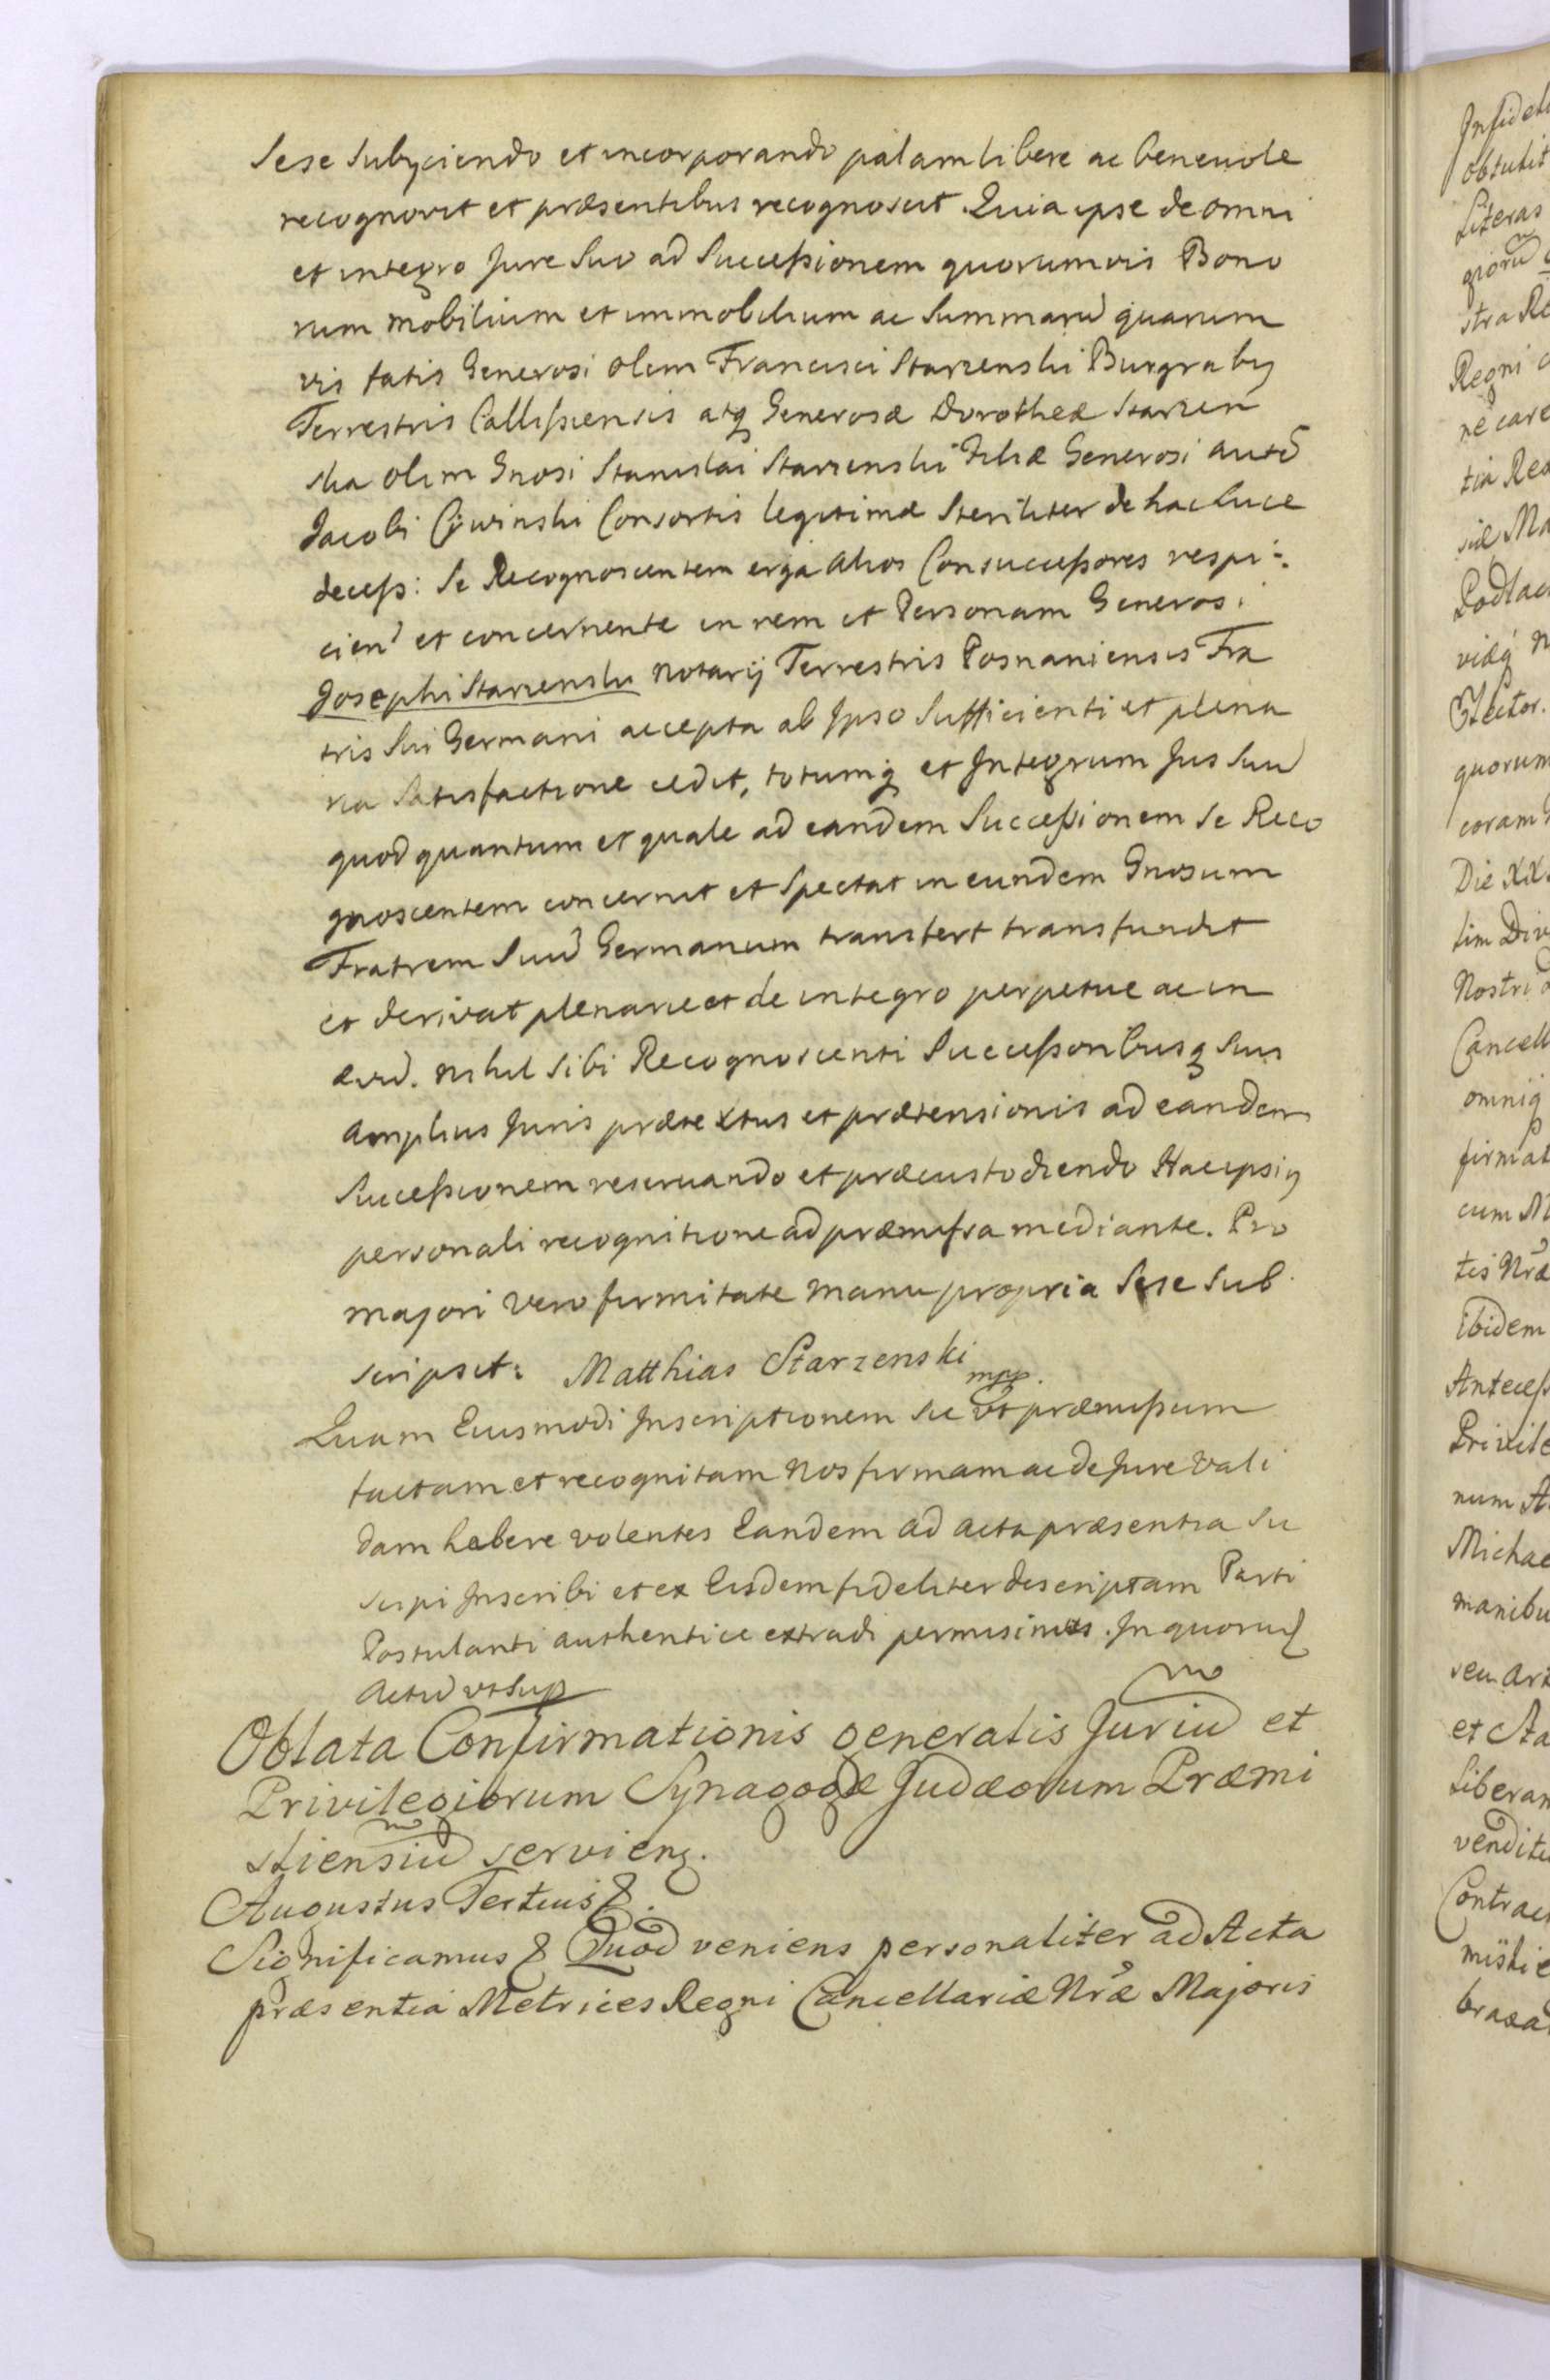 Sese Subyciendo et incorporando palam libere ac benevole
recognovit et præsentibus recognoscit. Quia ipse de omni
et integro Jure Suo ad Successionem quorumvis Bono
rum mobilium et immobilium ac Summarũ quarum
vis fatis Generosi olim Francisci Starzenski Burgraby
Terrestris Callissiensis atq Generosæ Dorotheæ Starzen
ska olim Gnosi Stanislai Starzenski Filiæ Generosi autẽ
Jacobi Consortis legitimæ Steriliter de hac Luce
decess: Se Recognoscentem erga alios Consuccessores respi:
cien et concernente in rem et Personam Generosi
Josephi Starzenski Notarij Terrestris Posnaniensis Fra
tris Sui Germani accepta ab Ipso Sufficienti et plena
ria Satisfactione cedit, totumq et Integrum Jus Suũ
quod quantum et quale ad eandem Successionem Se Reco
gnoscentem concernit et Spectat in eundem Gnosum
Fratrem Suũ Germanum transfert transfundit
et derivat plenarie et de integro perpetue ac in
ævũ. nihil Sibi Recognoscenti Successoribusq Suis
amplius Juris prætextus et prætensionis ad eandem
Successionem reservando et præcustodiendo Hac ipsiq
personali recognitione ad præmissa mediante. Pro
majori vero firmitate manu propria Sese Sub
scripsit: Matthias Starzenski mpp.
Quam Eiusmodi Inscriptionem Sic ut præmissum
factam et recognitam Nos firmam ac de Jure vali
dam habere volentes Eandem ad acta præsentia Su
scipi Inscribi et ex Eisdem fideliter descriptam Parti
Postulanti authentice extradi permisimus. In quorũ
Actũ ut Sup
Oblata Confirmationis generalis Juriũ et
Privilegiorum Synagogæ Judæorum Præmi
sliensiũ servieng.
Augustus Tertius &.
Significamus & Quod veniens personaliter ad Acta
præsentia Metrices Regni Cancellariæ Nræ Majoris
Infideli
obtulit
Literas
giorũ
stra Re
Regni
ne care
tia Rea
siæ Ma
Podlac
vidq N
Elector.
quorum
coram
Die XIX.
tim Div
Nostri
Cancell
omniq
firmat
cum M
tis Nræ
ibidem
Antecess
Privile
num A
Michae
manibu
seu Art
et Sta
Liberam
venditi
Contrac
mislie